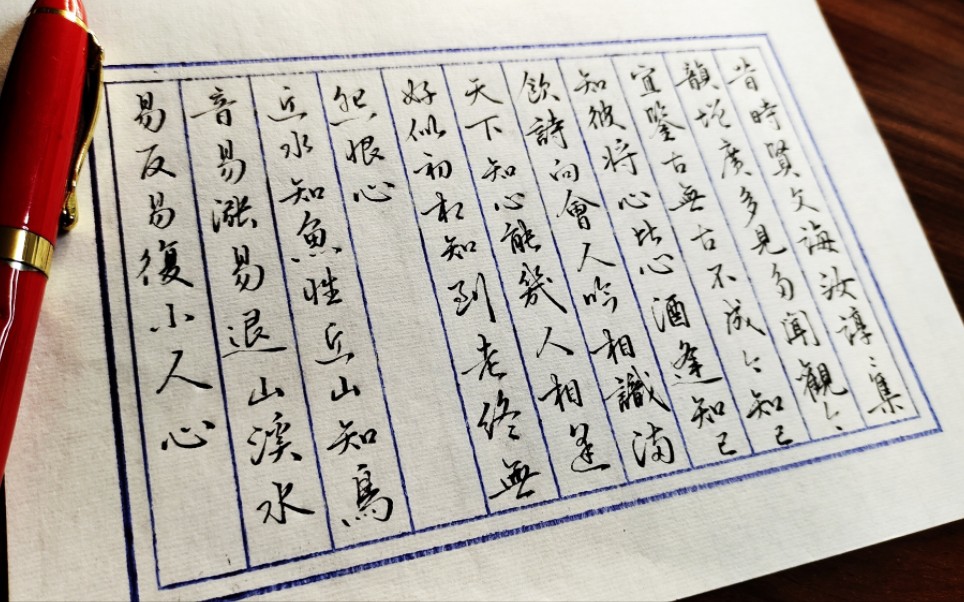 昔時賢文誨汝諄〻集
韻增廣多見多聞觀今
宜鑒古無古不成今知己
知彼將心比心酒逢知己
飲詩向會人吟相識滿
天下知心能幾人相逢
好似初相知到老終無
怨恨心
近水知魚性近山知鳥
音易漲易退山溪水
易反易復小人心